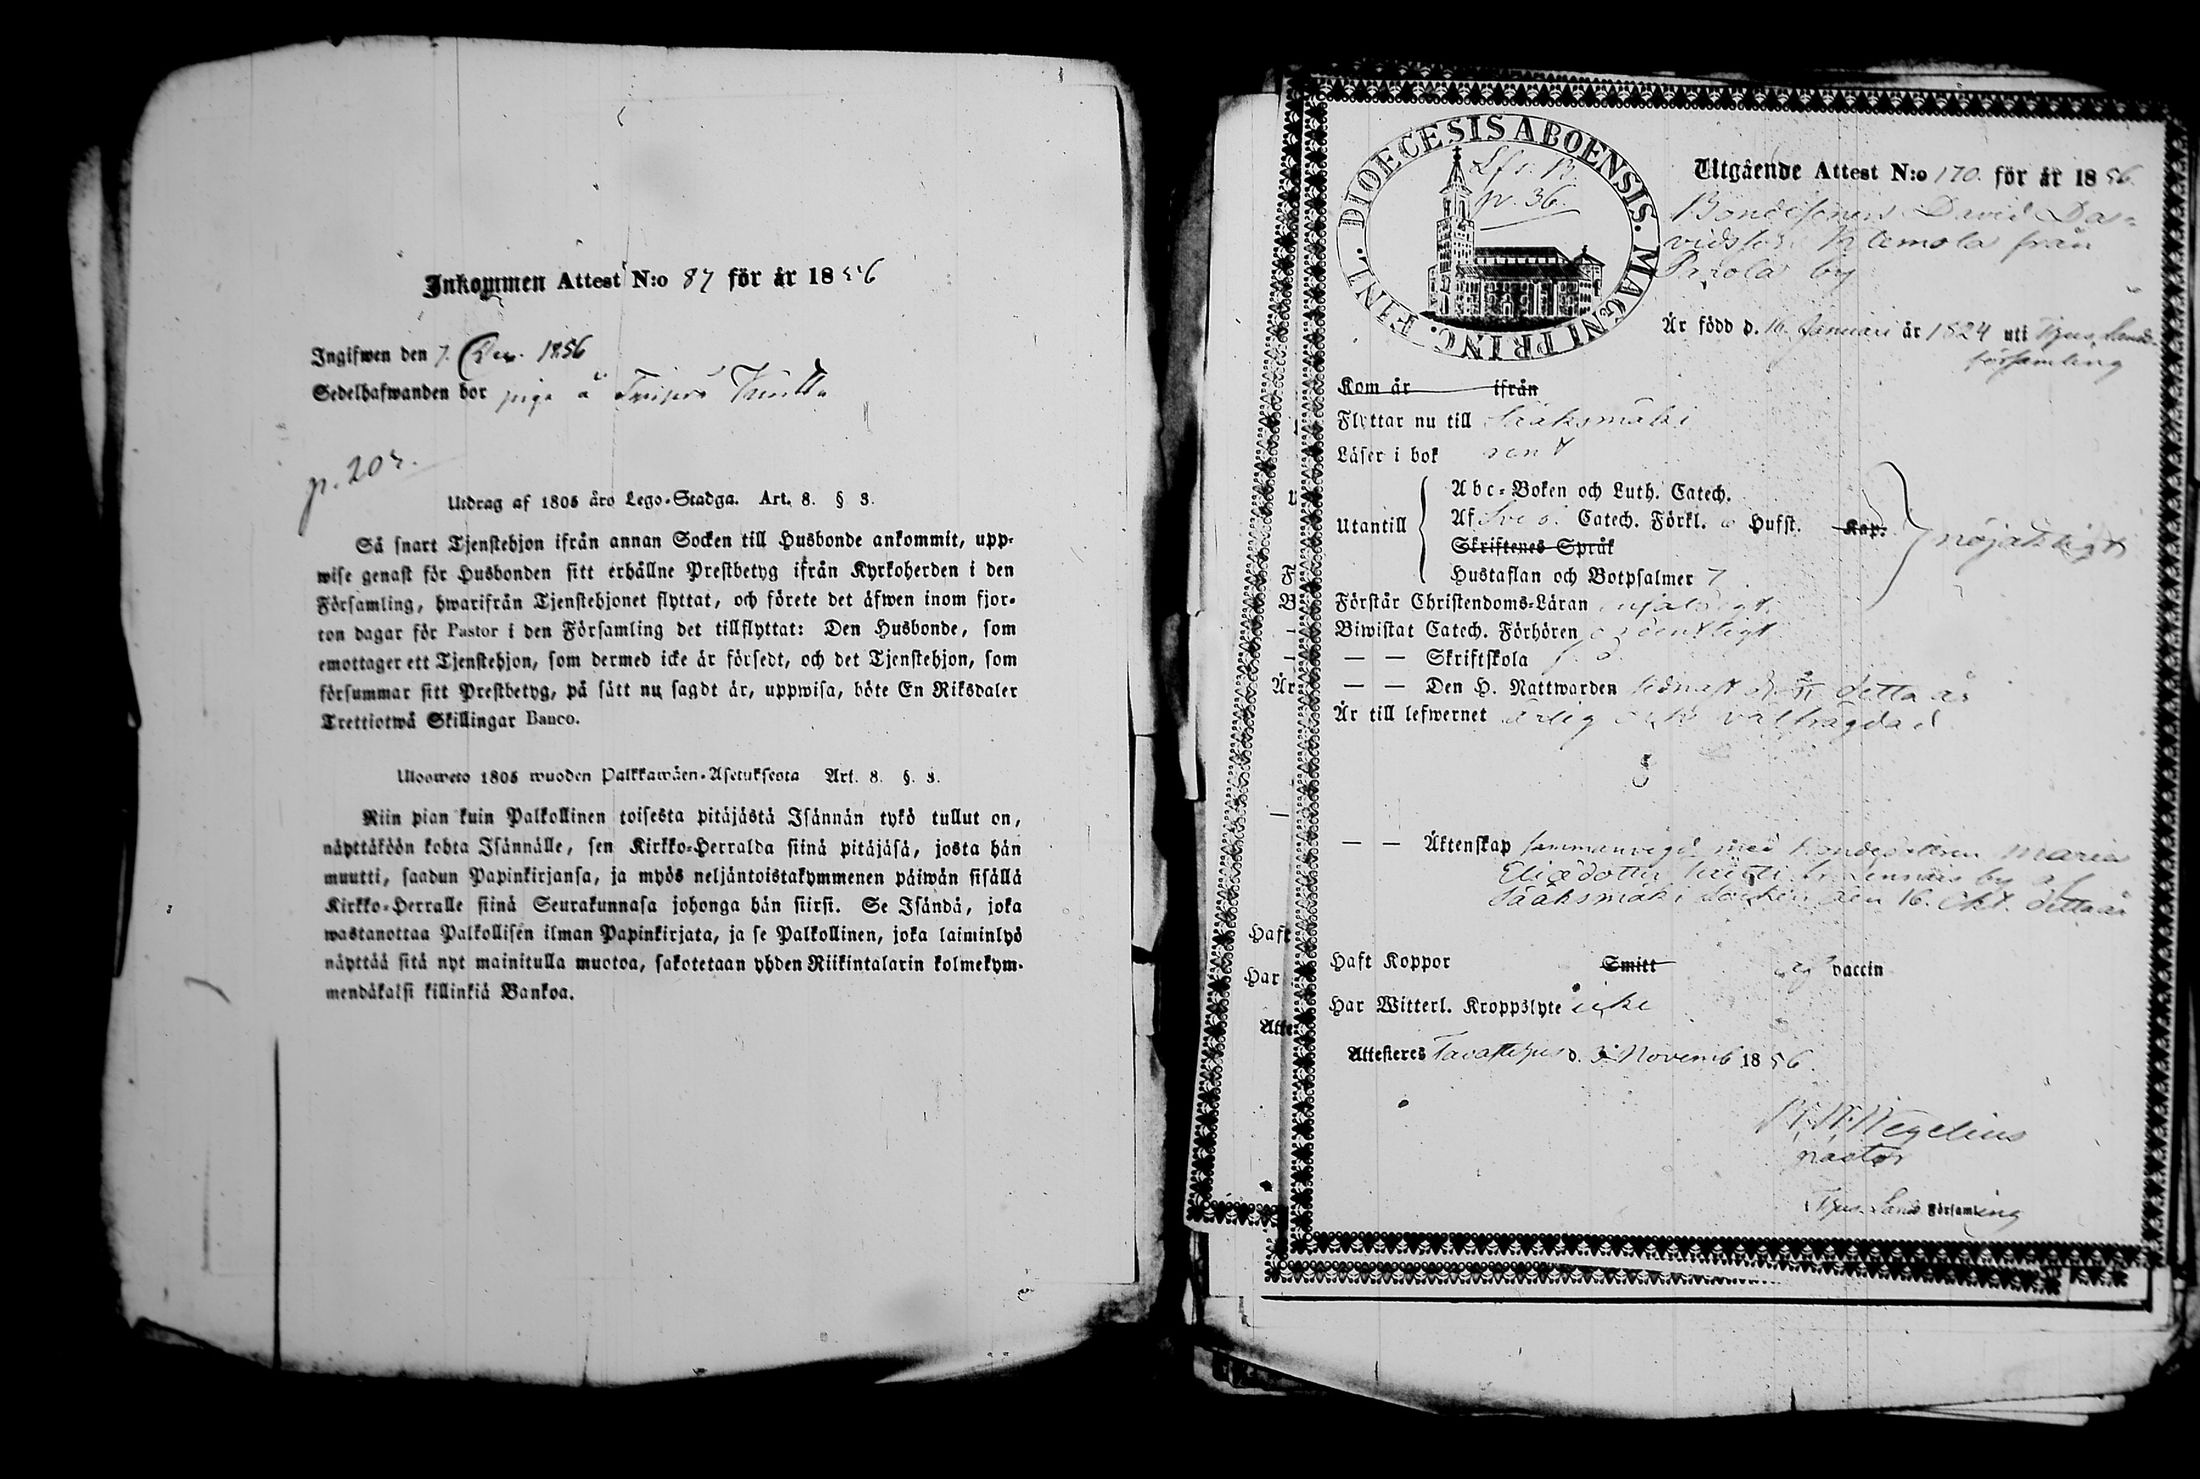 Inkommen Attest N:o 87 för år 1856
Ingifwen den 7 Dec. 1856
Sedelhafwanden bor piga å
p. 202.
Utdrag af 1805 års Lego-Stadga. Art. 8. § 3.
Så snart Tjenstehjon ifrån annan Socken till Husbonde ankommit, upp-
wise genast för Husbonden sitt erhållne Prestbetyg ifrån Kyrkoherden i den
Församling, hwarifrån Tjenstehjonet flyttat, och förete det äfwen inom fjor-
ton dagar för Pastor i den Församling det tillflyttat: Den Husbonde, som
emottager ett Tjenstehjon, som dermed icke är försedt, och det Tjenstehjon, som
försummar sitt Prestbetyg, på sätt nu sagdt är, uppwisa, böte En Riksdaler
Trettiotwå Skillingar Banco.
Uloswete 1805 wuoden Palkkawäen-Asetuksesta Art. 8. §. 3.
Niin pian kuin Palkollinen toisesta pitäjästä Isännän tykö tullut on,
näyttäköön kohta Isännälle, sen Kirkko-Herralda siinä pitäjäsä, josta hän
muutti, saadun Papinkirjansa, ja myös neljäntoistakymmenen päiwän sisällä
Kirkko-Herralle siinä Seurakunnasa johonga hän siirsi. Se Isändä, joka
wastanottaa Palkollisen ilman Papinkirjata, ja se Palkollinen, joka laiminlyö
näyttää sitä nyt mainitulla muotoa, sakotetaan yhden Riikintalarin kolmekym-
mendäkaksi killinkiä Bankoa.
DIOECESIS ABOENSIS. MAGNI PRINC. FINL.
p. 36.
Utgående Attest N:o 170. för år 1856.
Bondesonen David Da-
vidsson Klemola från
Parola by
Är född d. 16 Januari år 1824 uti Tjus Lands
församling
Kom år ifrån
Flyttar nu till Sääksmäki
Läser i bok rent
Utantill
Abc-Boken och Luth. Catech.
Af Sveb. Catech. Förkl. o Hufst. Kap.
Skriftenes Språk
Hustaflan och Botpsalmer 7
nöjaktigt
Förstår Christendoms-Läran nöjaktigt
Biwistat Catech. Förhören ordentligt
— — Skriftskola
— — Den H. Nattwarden sednast detta år
Är till lefwernet ärlig och välfrägdad
— — Äktenskap sammanvigd med bondedottren Maria
Eliædotter by af
Sääksmäki socken den 16. Okt. detta år
Haft Koppor Smitt vaccin
Har Witterl. Kroppslyte icke
Attesteres Tavastehus d. 3 Novemb 1856.
Wegelius
pastor
Tjus Lands Församling
Är
Haft
Har
Atte